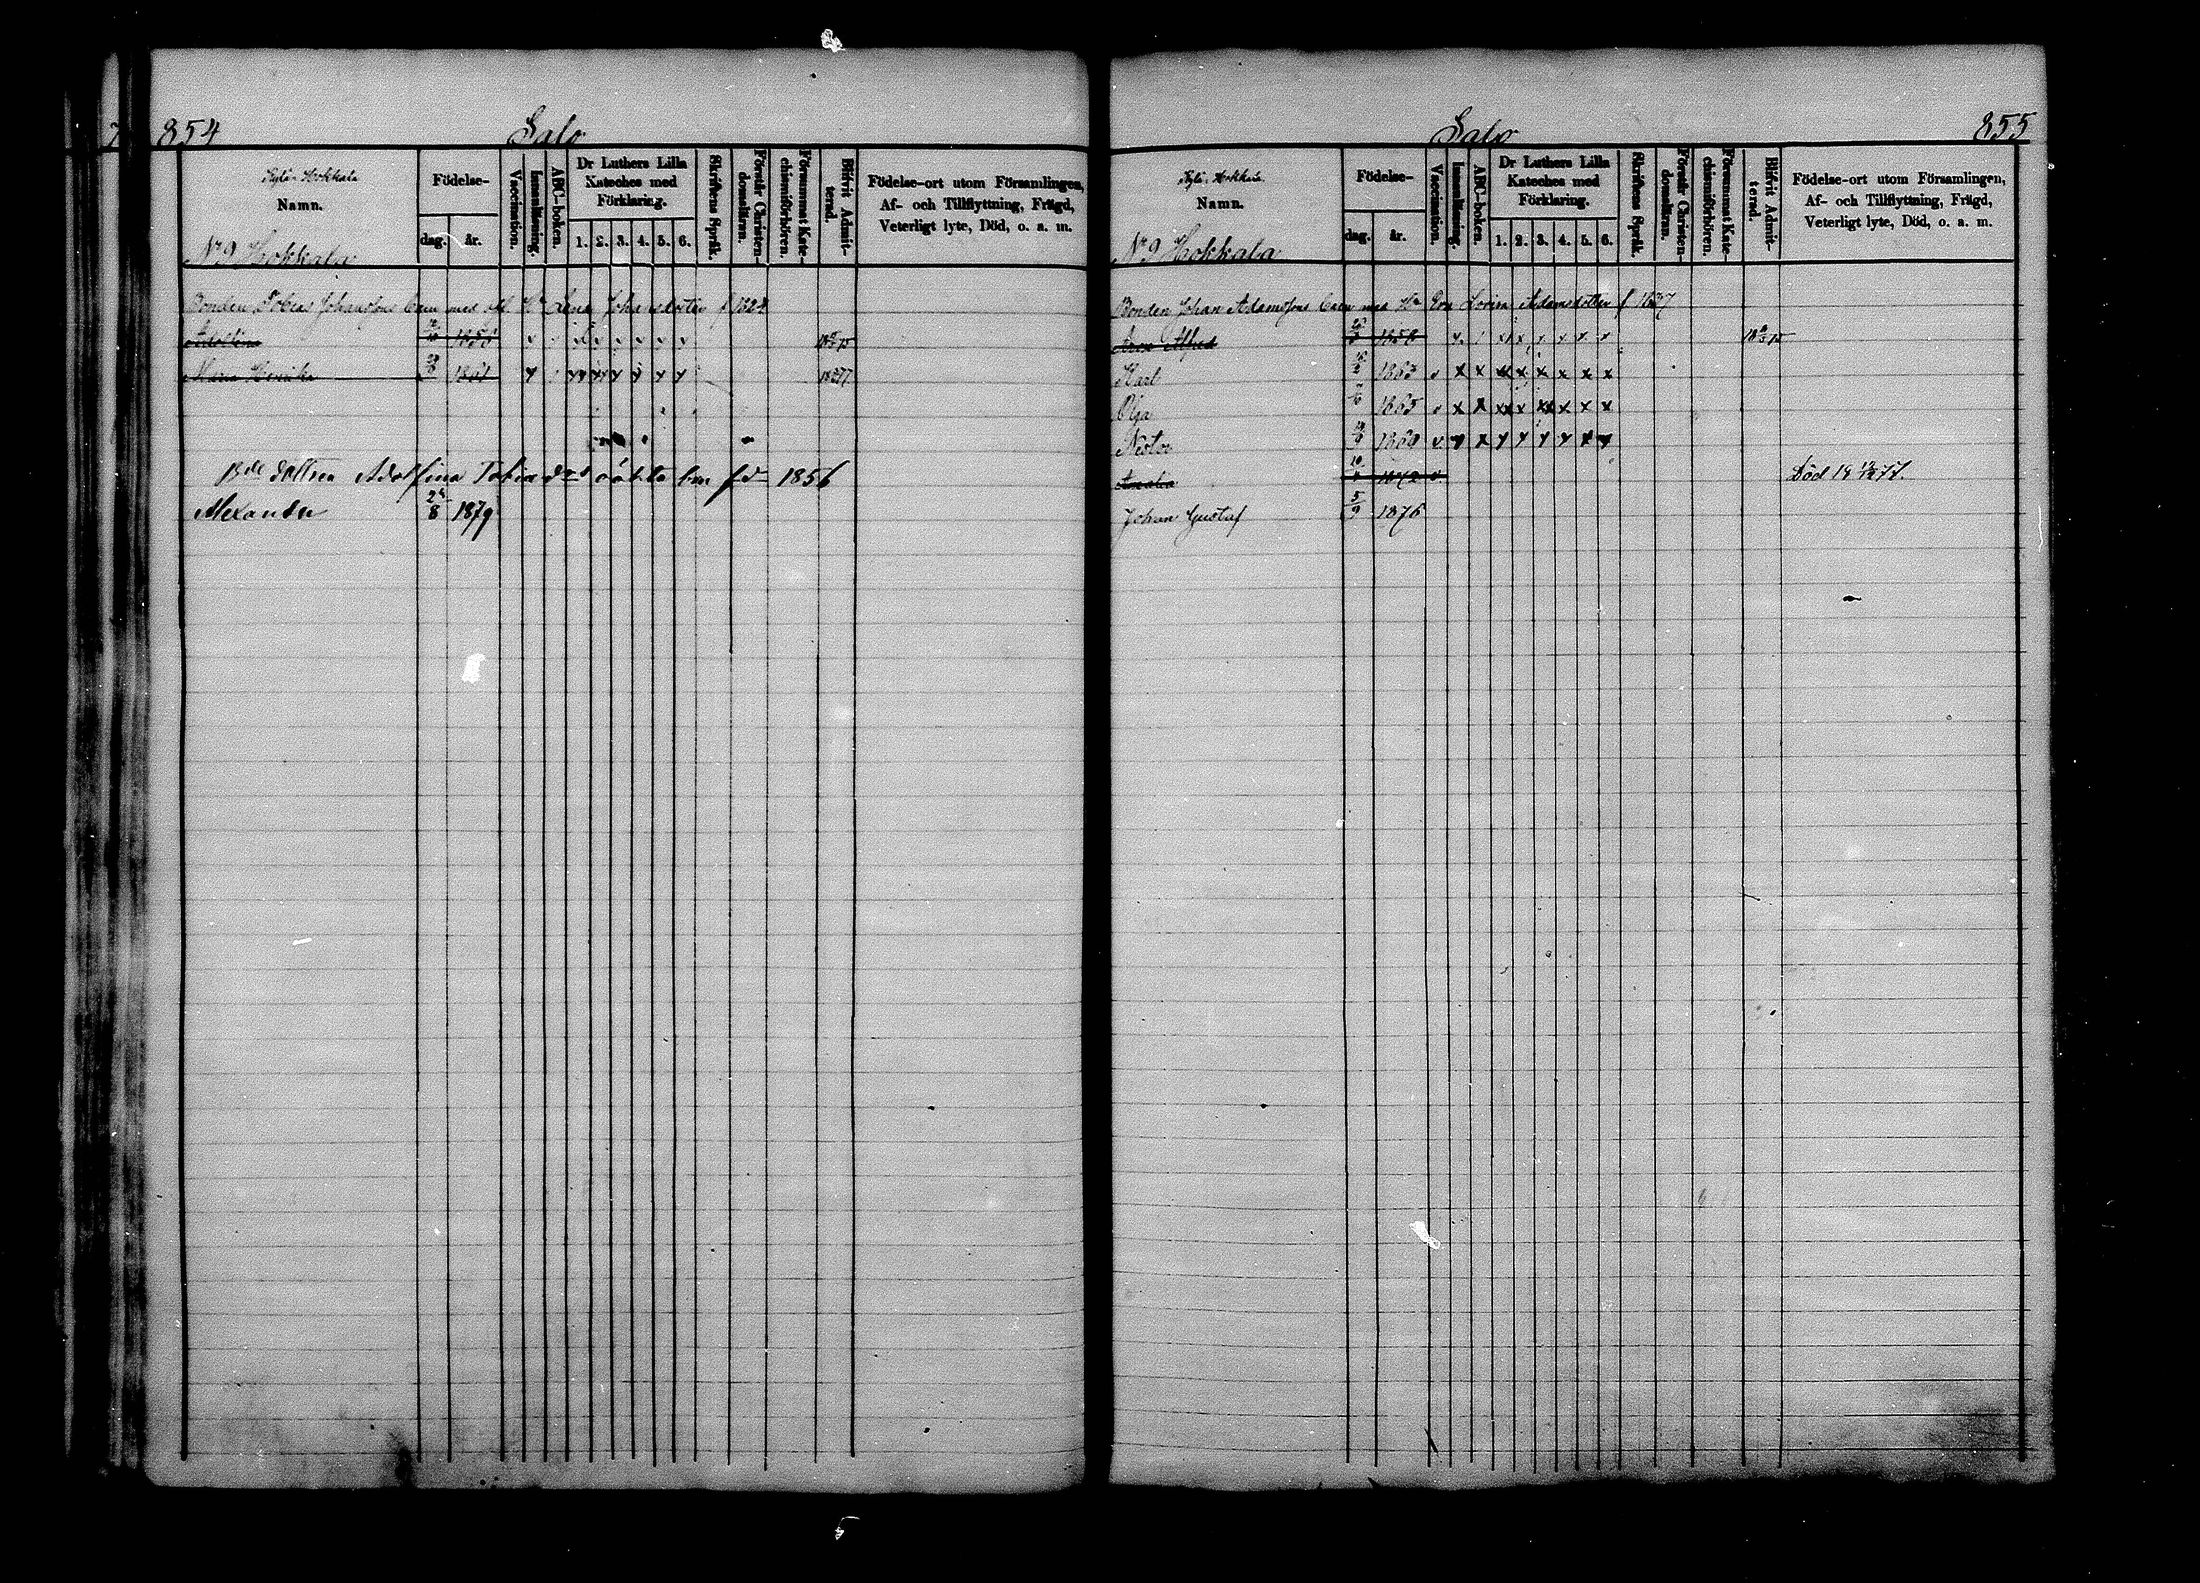 854 Salo
Kylä-Hokkala
Namn.
Födelse-
dag. år.
Vaccination.
Innanläsning.
ABC-boken.
Dr Luthers Lilla Kateches med Förklaring.
1. 2. 3. 4. 5. 6.
Skriftens Språk.
Förstår Christendomsläran.
Försummat Katechismiförhören.
Blifvit Admitterad.
Födelse-ort utom Församlingen, Af- och Tillflyttning, Frägd, Veterligt lyte, Död, o. a. m.
No 9 Hokkala
Bonden Tobias Johanssons barn med afl. Hu Lena Johansdotter f 1824
Adolfina 1856
Maria Henrika 1861 1877
Bde dottren Adolfina Tobiasdr oäkta barn fd 1856
Alexander 24/8 1879
Salo 855
Kylä-Hokkala
Namn.
Födelse-
dag. år.
Vaccination.
Innanläsning.
ABC-boken.
Dr Luthers Lilla Kateches med Förklaring.
1. 2. 3. 4. 5. 6.
Skriftens Språk.
Förstår Christendomsläran.
Försummat Katechismiförhören.
Blifvit Admitterad.
Födelse-ort utom Församlingen, Af- och Tillflyttning, Frägd, Veterligt lyte, Död, o. a. m.
No 9 Hokkala
Bonden Johan Adamssons barn med Hu Eva Lovisa Adamsdotter f 1837
Alfred 1858
Karl 1863
Olga 1865
Nestor 1869
Amalia 1872 Död
Johan Gustaf 5/9 1876